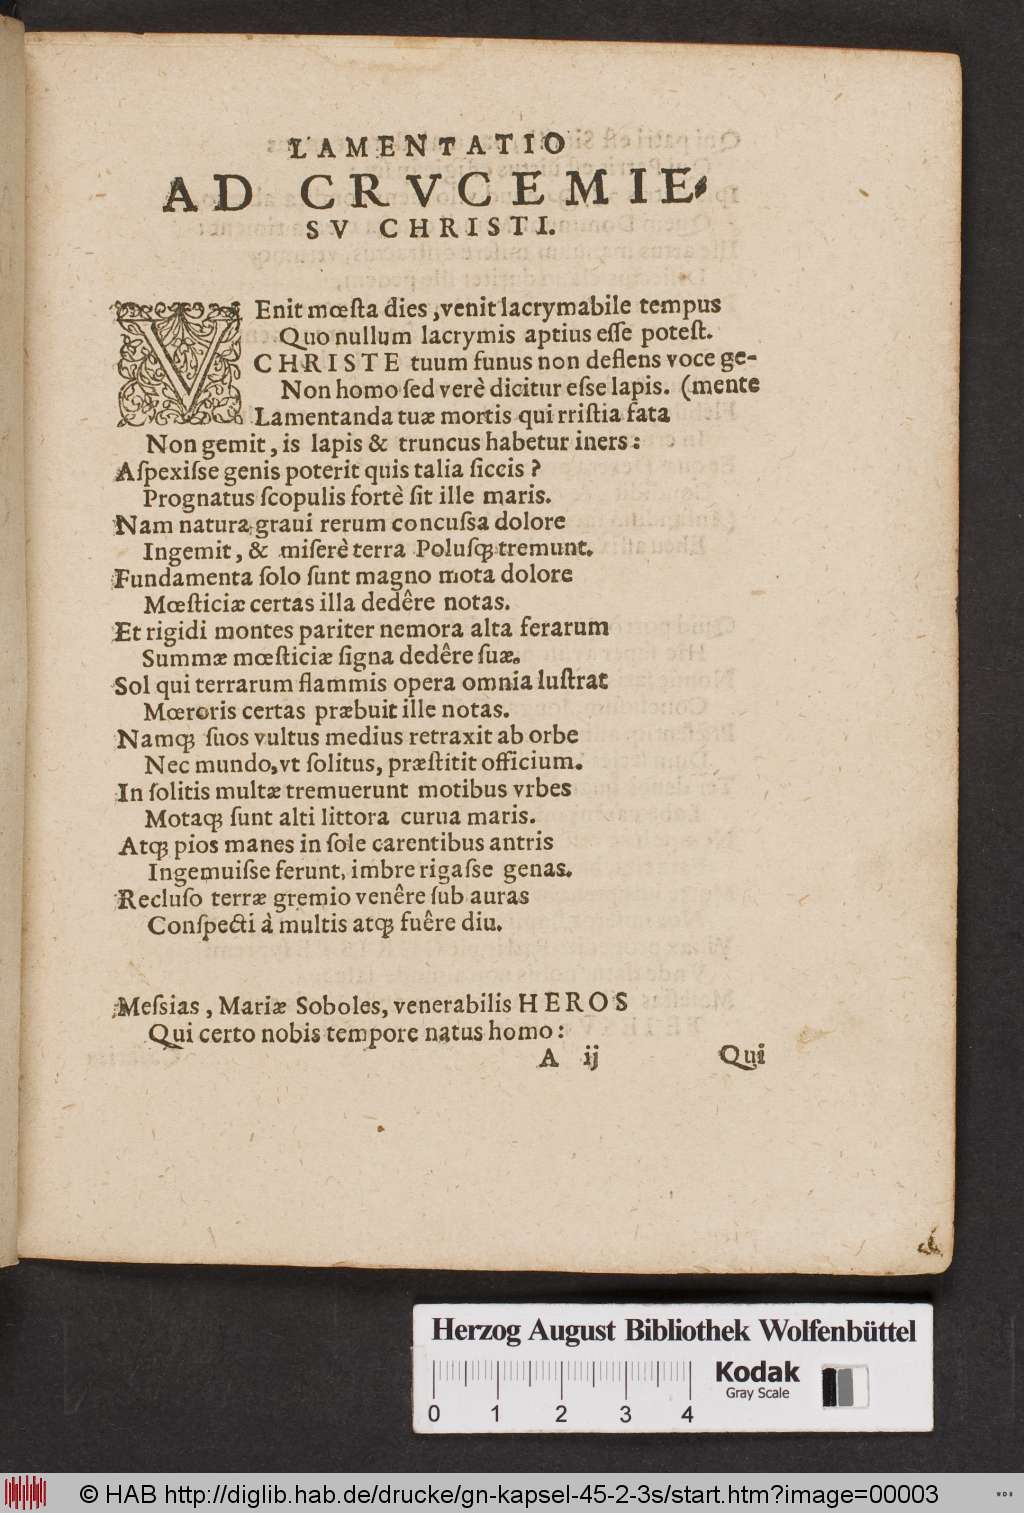 LAMENTATIO
AD CRVCEM IE-
SV CHRISTI.
VEnit mœſta dies, venit lacrymabile tempus
Quo nullum lacrymis aptius eſſe poteſt.
CHRISTE tuum funus non deflens voce ge-
Non homo ſed verè dicitur eſse lapis. (mente
Lamentanda tuæ mortis qui rriſtia fata
Non gemit, is lapis & truncus habetur iners:
Aſpexiſse genis poterit quis talia ſiccis?
Prognatus ſcopulis fortè ſit ille maris.
Nam natura graui rerum concuſsa dolore
Ingemit, & miſerè terra Poluſq; tremunt.
Fundamenta ſolo ſunt magno mota dolore
Mœſticiæ certas illa dedêre notas.
Et rigidi montes pariter nemora alta ferarum
Summæ mœſticiæ ſigna dedêre ſuæ.
Sol qui terrarum flammis opera omnia luſtrat
Mœroris certas præbuit ille notas.
Namq; ſuos vultus medius retraxit ab orbe
Nec mundo, vt ſolitus, præſtitit officium.
In ſolitis multæ tremuerunt motibus vrbes
Motaq; ſunt alti littora curua maris.
Atq; pios manes in ſole carentibus antris
Ingemuiſse ferunt, imbre rigaſse genas.
Recluſo terræ gremio venêre ſub auras
Conſpecti à multis atq; fuêre diu.
Meſsias, Mariæ Soboles, venerabilis HEROS
Qui certo nobis tempore natus homo:
A ij Qui
Herzog August Bibliothek Wolfenbüttel
Kodak
Gray Scale
0 1 2 3 4
© HAB http://diglib.hab.de/drucke/gn-kapsel-45-2-3s/start.htm?image=00003